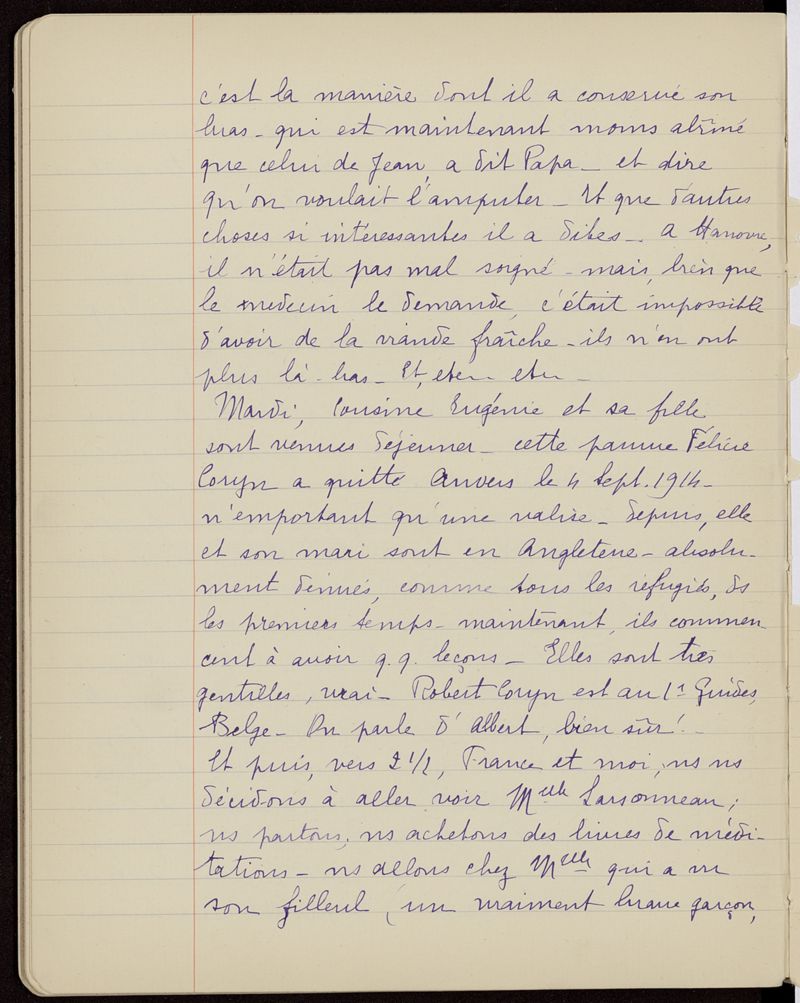 c'est la manière dont il a conservé son
bras - qui est maintenant moins abîmé
que celui de Jean, a dit Papa - et dire
qu'on voulait l'amputer - Et que d'autres
choses si intéressantes il a dites -. A Hanovre,
il n'était pas mal soigné - mais, bien que
le medecin le demande, c'était impossible
d'avoir de la viande fraîche - ils n'en ont
plus là-bas - Et, etc - etc -
Mardi, Cousine Eugénie et sa fille
sont venues déjeuner - cette pauvre Félicie
Coryn a quitté Anvers le 4 Sept. 1914 -
n'emportant qu'une valise - Depuis, elle
et son mari sont en Angleterre - absolu-
ment dénués, comme tous les réfugiés, ds
les premiers temps - maintenant, ils commen-
cent à avoir q.q. leçons - Elles sont très
gentilles, vrai - Robert Coryn est au 1r Guides,
Belge - On parle d'Albert, bien sûr! -
Et puis, vers 2 1/2, France et moi, ns ns
décidons à aller voir Melle Larsonneau;
ns partons, ns achetons des livres de médi-
tations - ns allons chez Melle qui a vu
son filleul (un vraiment brave garçon,